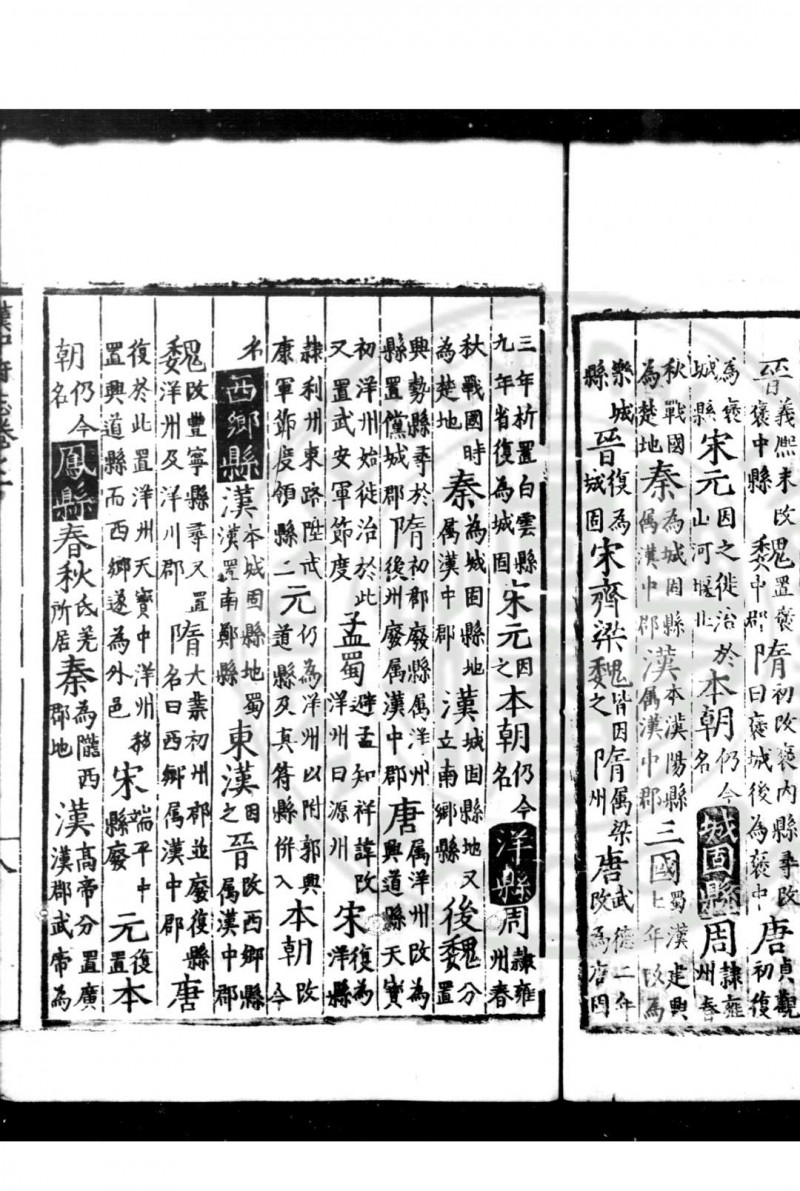 晉義熙末改褒中縣魏置褒中郡隋初改褒內縣尋改曰褒城後為褒中唐貞觀初復
為褒城縣宋元因之徙治於山河堰北本朝仍今名城固縣周隸雍州春
秋戰國為楚地秦為城固縣屬漢中郡漢本漢陽縣屬漢中郡三國蜀漢建興七年改為
樂城縣晉復為城固宋齊梁魏皆因之隋屬梁州唐武德二年改為唐固
三年析置白雲縣九年省復為城固宋元因之本朝仍今名洋縣周隸雍州春
秋戰國時為楚地秦為城固縣地屬漢中郡漢城固縣地又立南鄉縣後魏分置
興勢縣尋於縣置儻城郡隋初郡廢縣屬洋州後州廢屬漢中郡唐屬洋州改為興道縣天寶
初洋州始徙治於此又置武安軍節度孟蜀避孟知祥諱改洋州曰源州宋復為洋縣
隸利州東路陞武康軍節度領縣二元仍為洋州以附郭興道縣及真符縣併入本朝改今
名西鄉縣漢本城固縣地蜀漢置南鄭縣東漢因之晉改西鄉縣屬漢中郡
魏改豐寧縣尋又置洋州及洋川郡隋大業初州郡並廢復縣名曰西鄉屬漢中郡唐
復於此置洋州天寶中洋州移置興道縣而西鄉遂為外邑宋端平中縣廢元復置本
朝仍今名鳳縣春秋氐羌所居秦為隴西郡地漢高帝分置廣漢郡武帝為
漢中府志卷之一
八